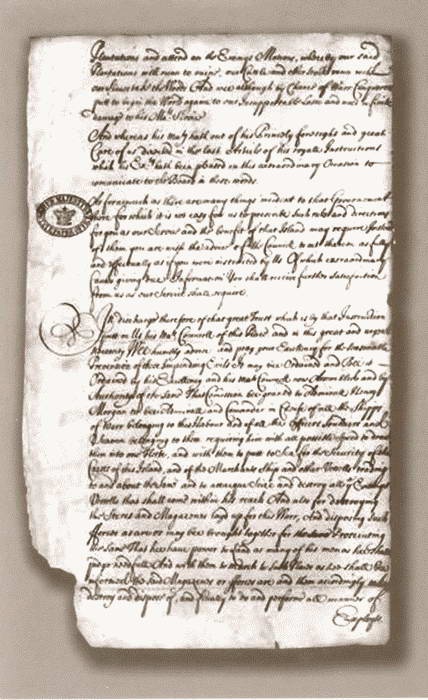 Plantations and attend on the Enemys Motions, whereby our said
Plantations will runn to ruine, our Cattle and
our Sinn to the Woods And wee although by Chance of Warr Conquerors
putt to begin the World againe to our Insupportable Losse and
damage to his Ma.ties
And whereas his Ma.ty hath out of his Princely foresight and great
Care of us in the last Article of his royall Instructions
which his Ex.cy hath been pleased on this extraordinary Occasion to
communicate to the Board in these words
As forasmuch as there are many things incident to that Government
there for which it is not easy for us to prescribe such rules and directions
for you as our Service and the benefit of that Island may require
of them you are with the advice of the Councill to act therein as fully
and effectually as if you were instructed by Us Of which extraordinary
Cases giving due Information You shall receive further satisfaction
from us as our Service shall require
In discharge therefore of that great Trust which is by that Instruction
putt on Us his Ma.ties Councell of this Place and in this great and urgent
Necessity Wee humbly advise and pray your Excellency for the seasonable
Prevention of these Impending Evils It may bee Ordained and Bee it
Ordained by his Excellency and his Ma.ties Councell now Assembled and by
Authority of the same That Commission bee granted to Admirall Henry
Morgan to bee Admirall and Comander in Cheife of all the Shipps
of Warr belonging to this Harbour And of all the Officers Souldiers and
Seamen belonging to them requiring him with all possible speed to draw
them into one Fleete, and with them to putt to Sea for the Security of the
Coast of this Island, and of the Merchant Ships and other Vessells trading
to and about the same and to attacque Seize and destroy all y.e Enemyes
Vessells that shall come within his reach And also for destroying
the Stores and Magazenes layd up for this Warr, And dispersing such
fforces as are or may bee brought together for the Prosecuting
the same That hee have power to Land as many of his men as hee shall
judge needfull And with them to march to such Places as hee shall bee
informed the said Magazenes or fforces are and them accordingly
destroy and disperse of, and finally to do and performe all manner of
Exployts